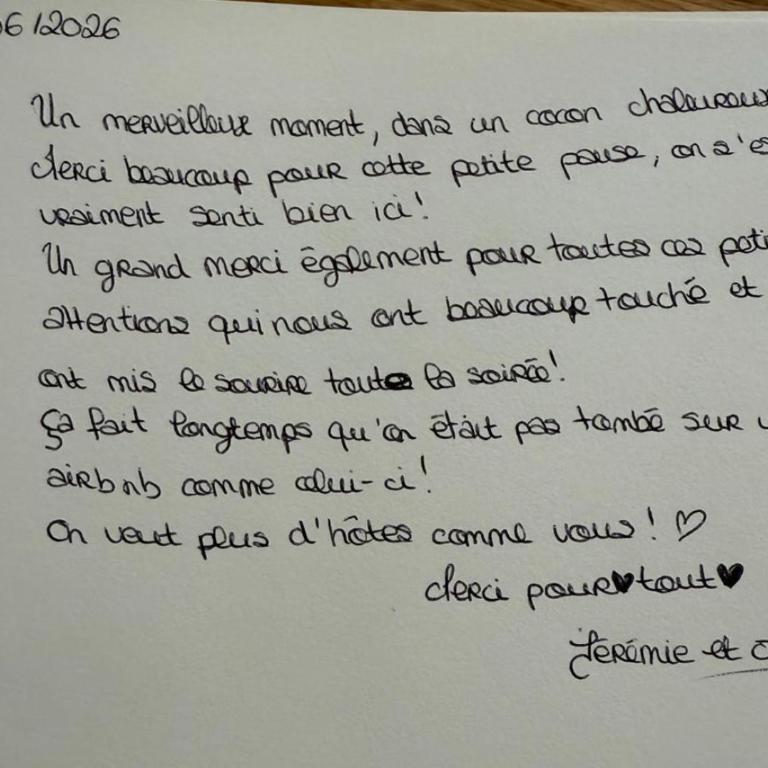 06/2026
Un merveilleux moment, dans un cocon chaleureux
Merci beaucoup pour cette petite pause, on s'es
vraiment senti bien ici!
Un grand merci également pour toutes ces peti
attentions qui nous ont beaucoup touché et
ont mis le sourire toute la soirée!
Ça fait longtemps qu'on était pas tombé sur u
airbnb comme celui-ci!
On veut plus d'hôtes comme vous! ♡
Merci pour♥tout♥
Jérémie et